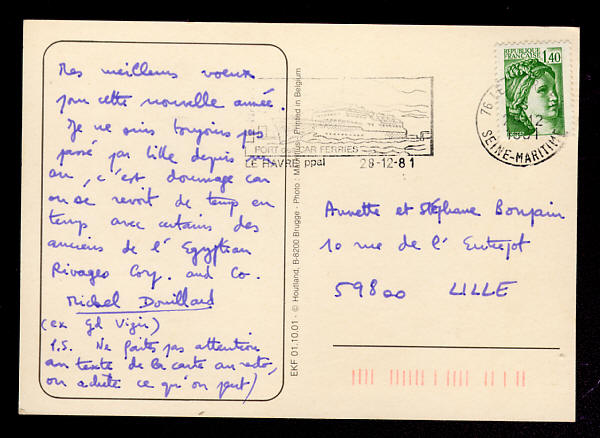 Mes meilleurs voeux
pour cette nouvelle année.
Je ne suis toujours pas
passé par Lille depuis un
an, c'est dommage car
on se revoit de temps en
temps avec certains des
anciens de l'Egyptian
Rivages Corp. and Co.
Michel Douillard
(ex Gd Vizir)
P.S. Ne faites pas attention
au texte de la carte au recto,
on achète ce qu'on peut)
EKF 01.10.01 - © Houtland, B-8200 Brugge - Photo : Printed in Belgium
PORT des CAR FERRIES
LE HAVRE ppal 28-12-81
REPUBLIQUE
FRANÇAISE 1,40
76 LE
12
1981
SEINE-MARITIME
Annette et Stéphane Bonpain
10 rue de l'Entrepot
59800 LILLE